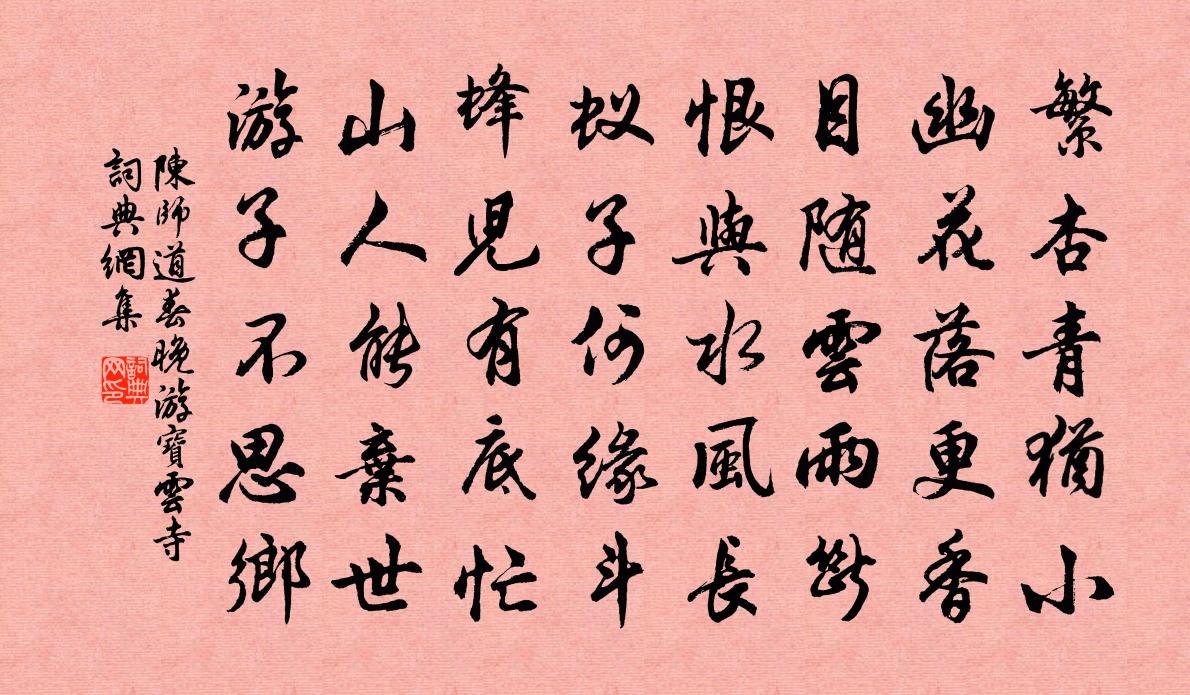 繁杏青猶小
幽花落更香
目随雲雨斷
恨與水風長
蚁子何缘斗
蜂児有底忙
山人能棄世
游子不思鄉
陳師道春晚游寶雲寺
詞典網集
詞典网印